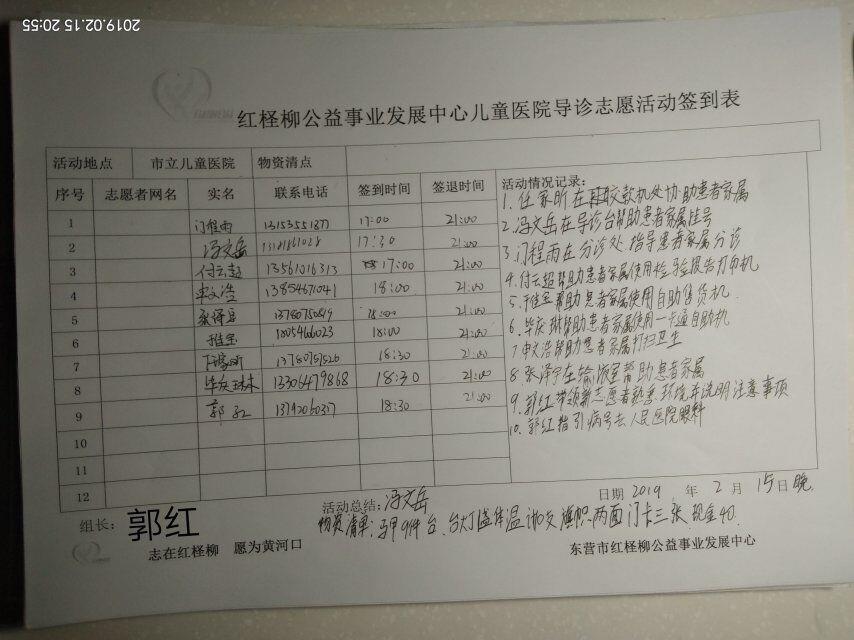 2019.02.15 20:55
红柽柳公益事业发展中心儿童医院导诊志愿活动签到表
活动地点 市立儿童医院 物资清点
序号 志愿者网名 实名 联系电话 签到时间 签退时间
1 门程雨 13153551877 17:00 21:00
2 冯文岳 17:30 21:00
3 付云超 13561016313 17:00 21:00
4 申文浩 13854671041 18:00 21:00
5 张泽宇 13780750819 18:00 21:00
6 18054666023 18:00 21:00
7 任家昕 13780757526 18:30 21:00
8 毕庆琳 13306479868 18:30 21:00
9 郭红 18:30 21:00
10
11
12
活动情况记录:
1. 任家昕在交款机处协助患者家属
2. 冯文岳在导诊台帮助患者家属挂号
3. 门程雨在分诊处指导患者家属分诊
4. 付云超帮助患者家属使用检验报告打印机
5. 帮助患者家属使用自助售货机
6. 毕庆琳帮助患者家属使用一卡通自助机
7 申文浩帮助患者家属打扫卫生
8 张泽宇在输液室帮助患者家属
9. 郭红带领新志愿者熟悉环境并说明注意事项
10. 郭红指引病号去人民医院眼科
日期 2019 年 2 月 15日晚
活动总结: 冯文岳
组长: 郭红
物资清单: 马甲9件 台灯 体温计 旗帜两面 门卡三张 现金40.
志在红柽柳 愿为黄河口
东营市红柽柳公益事业发展中心